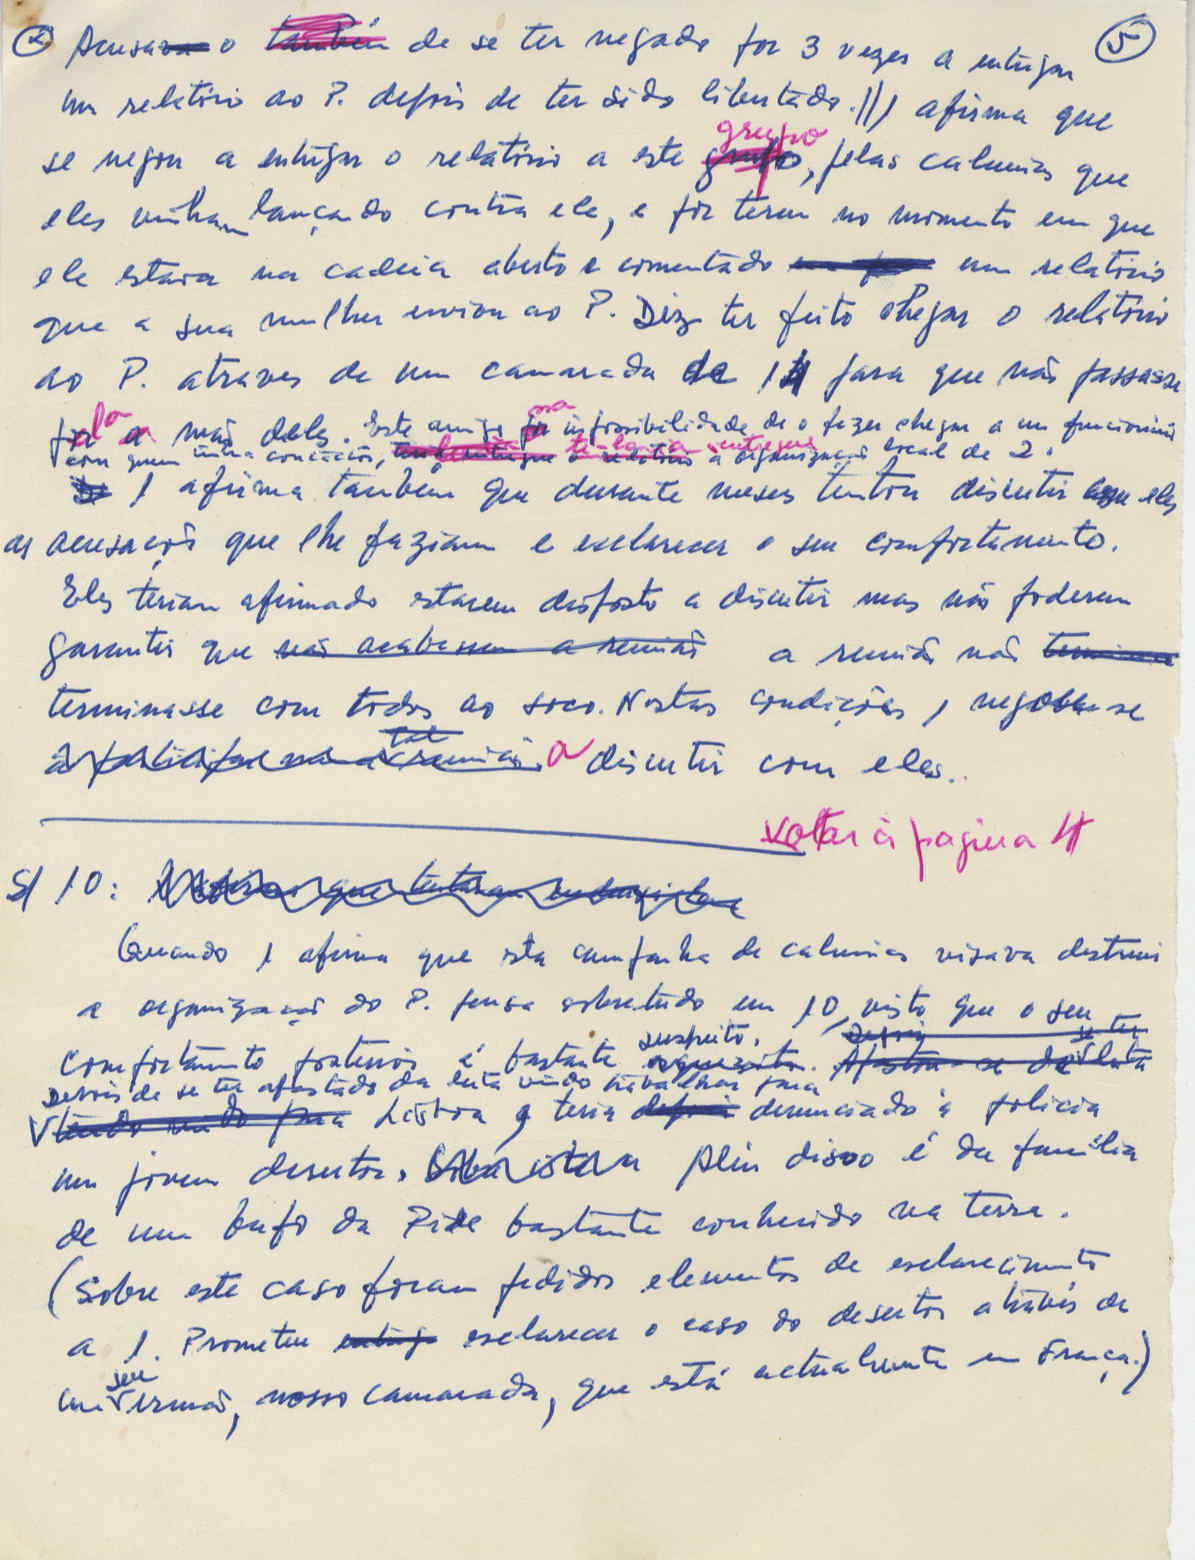 (x) Acusava o também de se ter negado por 3 vezes a entregar 5
um relatório ao P. depois de ter sido libertado. // 1 afirma que
se negou a entregar o relatório a este grupo, pelas calunias que
eles vinham lançando contra ele, e por terem no momento em que
ele estava na cadeia aberto e comentado um relatório
que a sua mulher enviou ao P. Diz ter feito chegar o relatório
ao P. atraves de um camarada de 14 para que não passasse
pela mão deles. Este amigo na impossibilidade de o fazer chegar a um funcionário
com quem tinha contactos, te-lo-ia entregue à organização local de 2.
1 afirma tambem que durante meses tentou discutir com eles
as acusações que lhe faziam e esclarecer o seu comportamento.
Eles teriam afirmado estarem disposto a discutir mas não poderem
garantir que não acabassem a reunião a reunião não terminasse
terminasse com todos ao soco. Nestas condições 1 negou-se
a discutir com eles.
voltar à página 4
S/ 10:
Quando 1 afirma que esta campanha de calunias visava destruir
a organização do P. pensa sobretudo em 10, visto que o seu
comportamento posterior é bastante suspeito.
Depois de se ter afastado da luta vindo trabalhar para
Lisboa, teria depois denunciado à policia
um jovem desertor. Alem disso é da familia
de um bufo da Pide bastante conhecido na terra.
(Sobre este caso foram pedidos elementos de esclarecimento
a 1. Prometeu esclarecer o caso do desertor através de
um seu irmão, nosso camarada, que está actualmente em França.)